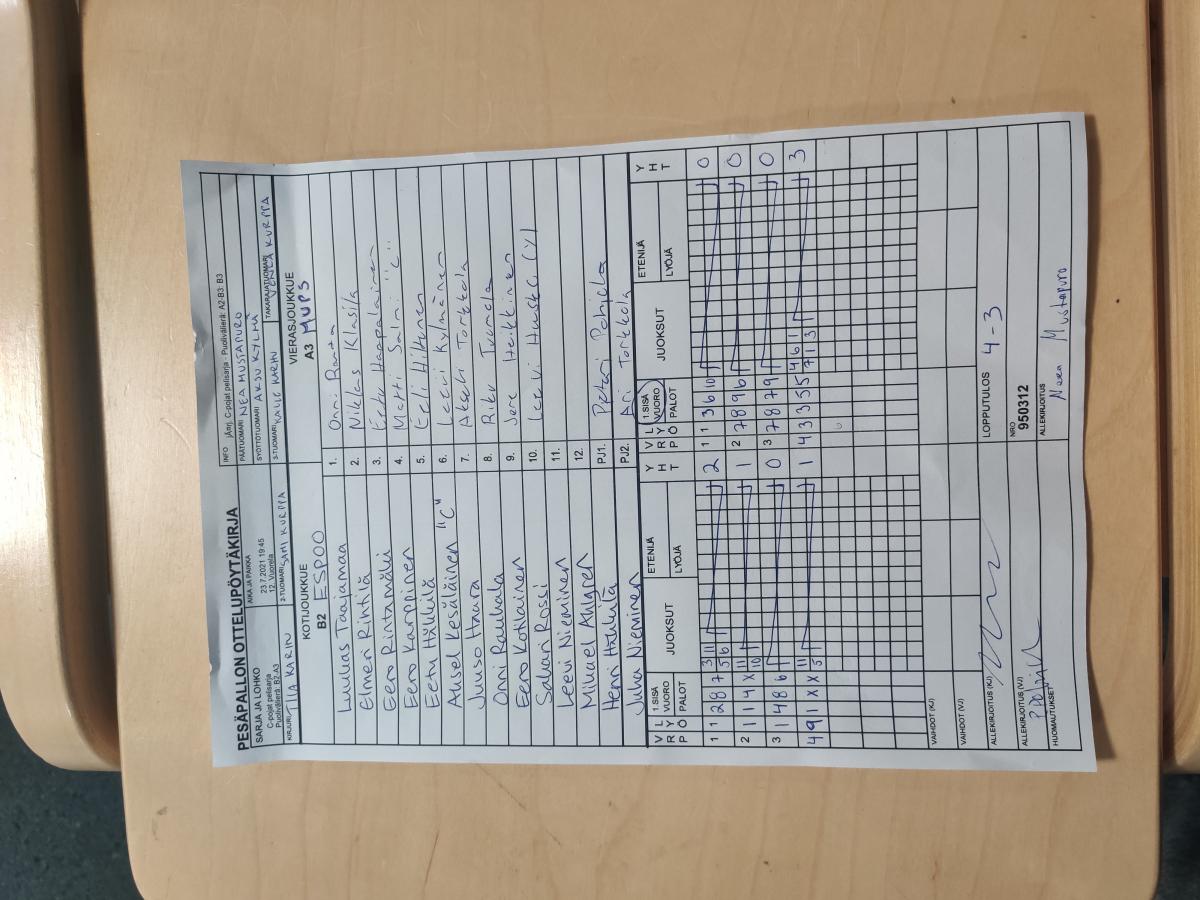 PESÄPALLON OTTELUPÖYTÄKIRJA
SARJA JA LOHKO
C-pojat pelisarja
Puolivälierä: B2-A3
AIKA JA PAIKKA
23.7.2021 19:45
12. Vuorela
INFO jäm. C-pojat pelisarja - Puolivälierä: A2-B3: B3
PÄÄTUOMARI NEA MUSTAPURO
SYÖTTÖTUOMARI AKSU KYLMÄ
KIRJURI TIIA KARIN
2-TUOMARI SAMI KURPPA
3-TUOMARI KALLE KARIN
TAKARAJATUOMARI KURPPA
KOTIJOUKKUE
B2 ESPOO
VIERASJOUKKUE
A3 MUPS
Luukas Taajamaa 1. Onni Ranta
Elmeri Rintilä 2. Niklas Klasila
Eero Rintamäki 3. Eetu Haapalainen
Eero Karppinen 4. Matti Salmi "c"
Eetu Häkkilä 5. Eeli Hiltunen
Aksel Kesäläinen "C" 6. Leevi Kylmänen
Juuso Haara 7. Akseli Torkkola
Onni Rauhala 8. Riku Tuomela
Eero Kotilainen 9. Jere Heikkinen
Sakari Rossi 10. Leevi Huusko (V)
Leevi Nieminen 11.
Mikael Ahlgren 12.
Henri Häkkilä PJ1. Petari Pohjola
Juha Nieminen PJ2. Ari Torkkola
V R P L Y Ö 1.SISÄ VUORO PALOT JUOKSUT ETENIJÄ LYÖJÄ Y H T V R P L Y Ö 1.SISÄ VUORO PALOT JUOKSUT ETENIJÄ LYÖJÄ Y H T
1 1 2 8 7 3 11 5 6 2 1 1 3 6 10 0
2 1 1 1 4 X 11 10 1 2 7 8 9 6 0
3 1 4 8 6 0 3 7 8 7 9 0
4 9 1 X X 11 5 1 4 3 3 5 5 4 6 1 7 1 3 3
VAIHDOT (KJ)
VAIHDOT (VJ)
ALLEKIRJOITUS (KJ)
LOPPUTULOS 4-3
ALLEKIRJOITUS (VJ)
NRO
950312
HUOMAUTUKSET
ALLEKIRJOITUS
Neea Mustapuro